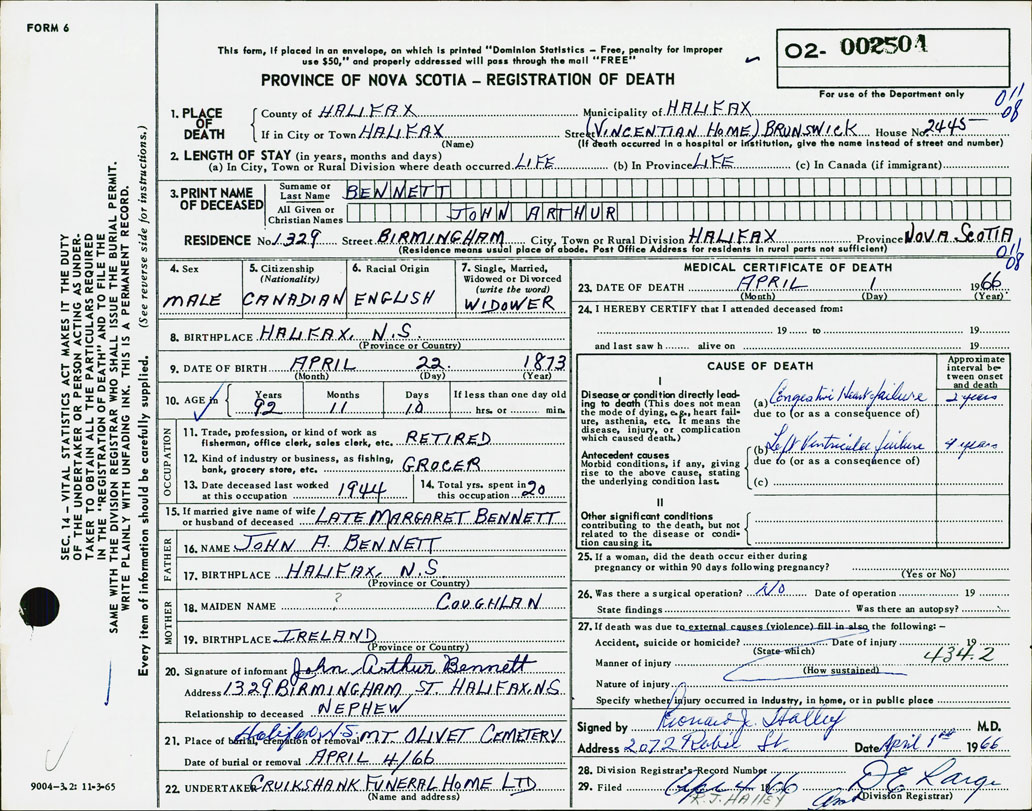 FORM 6
This form, if placed in an envelope, on which is printed "Dominion Statistics – Free, penalty for improper
use $50," and properly addressed will pass through the mail "FREE"
PROVINCE OF NOVA SCOTIA – REGISTRATION OF DEATH
02- 002501
For use of the Department only
011
08
1. PLACE OF DEATH
County of HALIFAX Municipality of HALIFAX
If in City or Town HALIFAX Street (VINCENTIAN HOME) BRUNSWICK House No. 2445
(Name) (If death occurred in a hospital or institution, give the name instead of street and number)
2. LENGTH OF STAY (in years, months and days)
(a) In City, Town or Rural Division where death occurred LIFE (b) In Province LIFE (c) In Canada (if immigrant)
3. PRINT NAME OF DECEASED
Surname or Last Name BENNETT
All Given or Christian Names JOHN ARTHUR
RESIDENCE No. 1329 Street BIRMINGHAM City, Town or Rural Division HALIFAX Province NOVA SCOTIA
(Residence means usual place of abode. Post Office Address for residents in rural parts not sufficient)
011
08
4. Sex MALE
5. Citizenship (Nationality) CANADIAN
6. Racial Origin ENGLISH
7. Single, Married, Widowed or Divorced (write the word) WIDOWER
8. BIRTHPLACE HALIFAX, N.S.
(Province or Country)
9. DATE OF BIRTH APRIL 22 1873
(Month) (Day) (Year)
10. AGE in Years Months Days If less than one day old
92 11 10 hrs. or min.
OCCUPATION
11. Trade, profession, or kind of work as
fisherman, office clerk, sales clerk, etc. RETIRED
12. Kind of industry or business, as fishing,
bank, grocery store, etc. GROCER
13. Date deceased last worked
at this occupation 1944
14. Total yrs. spent in
this occupation 20
15. If married give name of wife
or husband of deceased LATE MARGARET BENNETT
FATHER
16. NAME JOHN A. BENNETT
17. BIRTHPLACE HALIFAX, N.S.
(Province or Country)
MOTHER
18. MAIDEN NAME ? COUGHLAN
19. BIRTHPLACE IRELAND
(Province or Country)
20. Signature of informant John Arthur Bennett
Address 1329 BIRMINGHAM ST. HALIFAX, N.S.
Relationship to deceased NEPHEW
21. Place of burial, cremation or removal Halifax N.S. MT OLIVET CEMETERY
Date of burial or removal APRIL 4/66
22. UNDERTAKER CRUIKSHANK FUNERAL HOME LTD
(Name and address)
MEDICAL CERTIFICATE OF DEATH
23. DATE OF DEATH APRIL 1 1966
(Month) (Day) (Year)
24. I HEREBY CERTIFY that I attended deceased from:
19 to 19
and last saw h alive on 19
CAUSE OF DEATH
Approximate interval between onset and death
I
Disease or condition directly leading to death (This does not mean
the mode of dying, e.g., heart failure, asthenia, etc. It means the
disease, injury, or complication
which caused death.)
(a) Congestive Heart failure 2 years
due to (or as a consequence of)
Antecedent causes
Morbid conditions, if any, giving
rise to the above cause, stating
the underlying condition last.
(b) Left Ventricular failure 4 years
due to (or as a consequence of)
(c)
II
Other significant conditions
contributing to the death, but not
related to the disease or condition causing it.
25. If a woman, did the death occur either during
pregnancy or within 90 days following pregnancy?
(Yes or No)
26. Was there a surgical operation? NO Date of operation 19
State findings Was there an autopsy?
27. If death was due to external causes (violence) fill in also the following: –
Accident, suicide or homicide? Date of injury 19
(State which) 434.2
Manner of injury
(How sustained)
Nature of injury
Specify whether injury occurred in industry, in home, or in public place
Signed by J. Halley M.D.
Address 2072 Robie St. Date April 1st 1966
28. Division Registrar's Record Number
29. Filed Apr 4 1966
R. J. HALLEY
(Division Registrar)
SEC. 14 – VITAL STATISTICS ACT MAKES IT THE DUTY
OF THE UNDERTAKER OR PERSON ACTING AS UNDERTAKER TO OBTAIN ALL THE PARTICULARS REQUIRED
IN THE "REGISTRATION OF DEATH" AND TO FILE THE
SAME WITH THE DIVISION REGISTRAR WHO SHALL ISSUE THE BURIAL PERMIT.
WRITE PLAINLY WITH UNFADING INK. THIS IS A PERMANENT RECORD.
Every item of information should be carefully supplied. (See reverse side for instructions.)
9004-3.2: 11-3-65